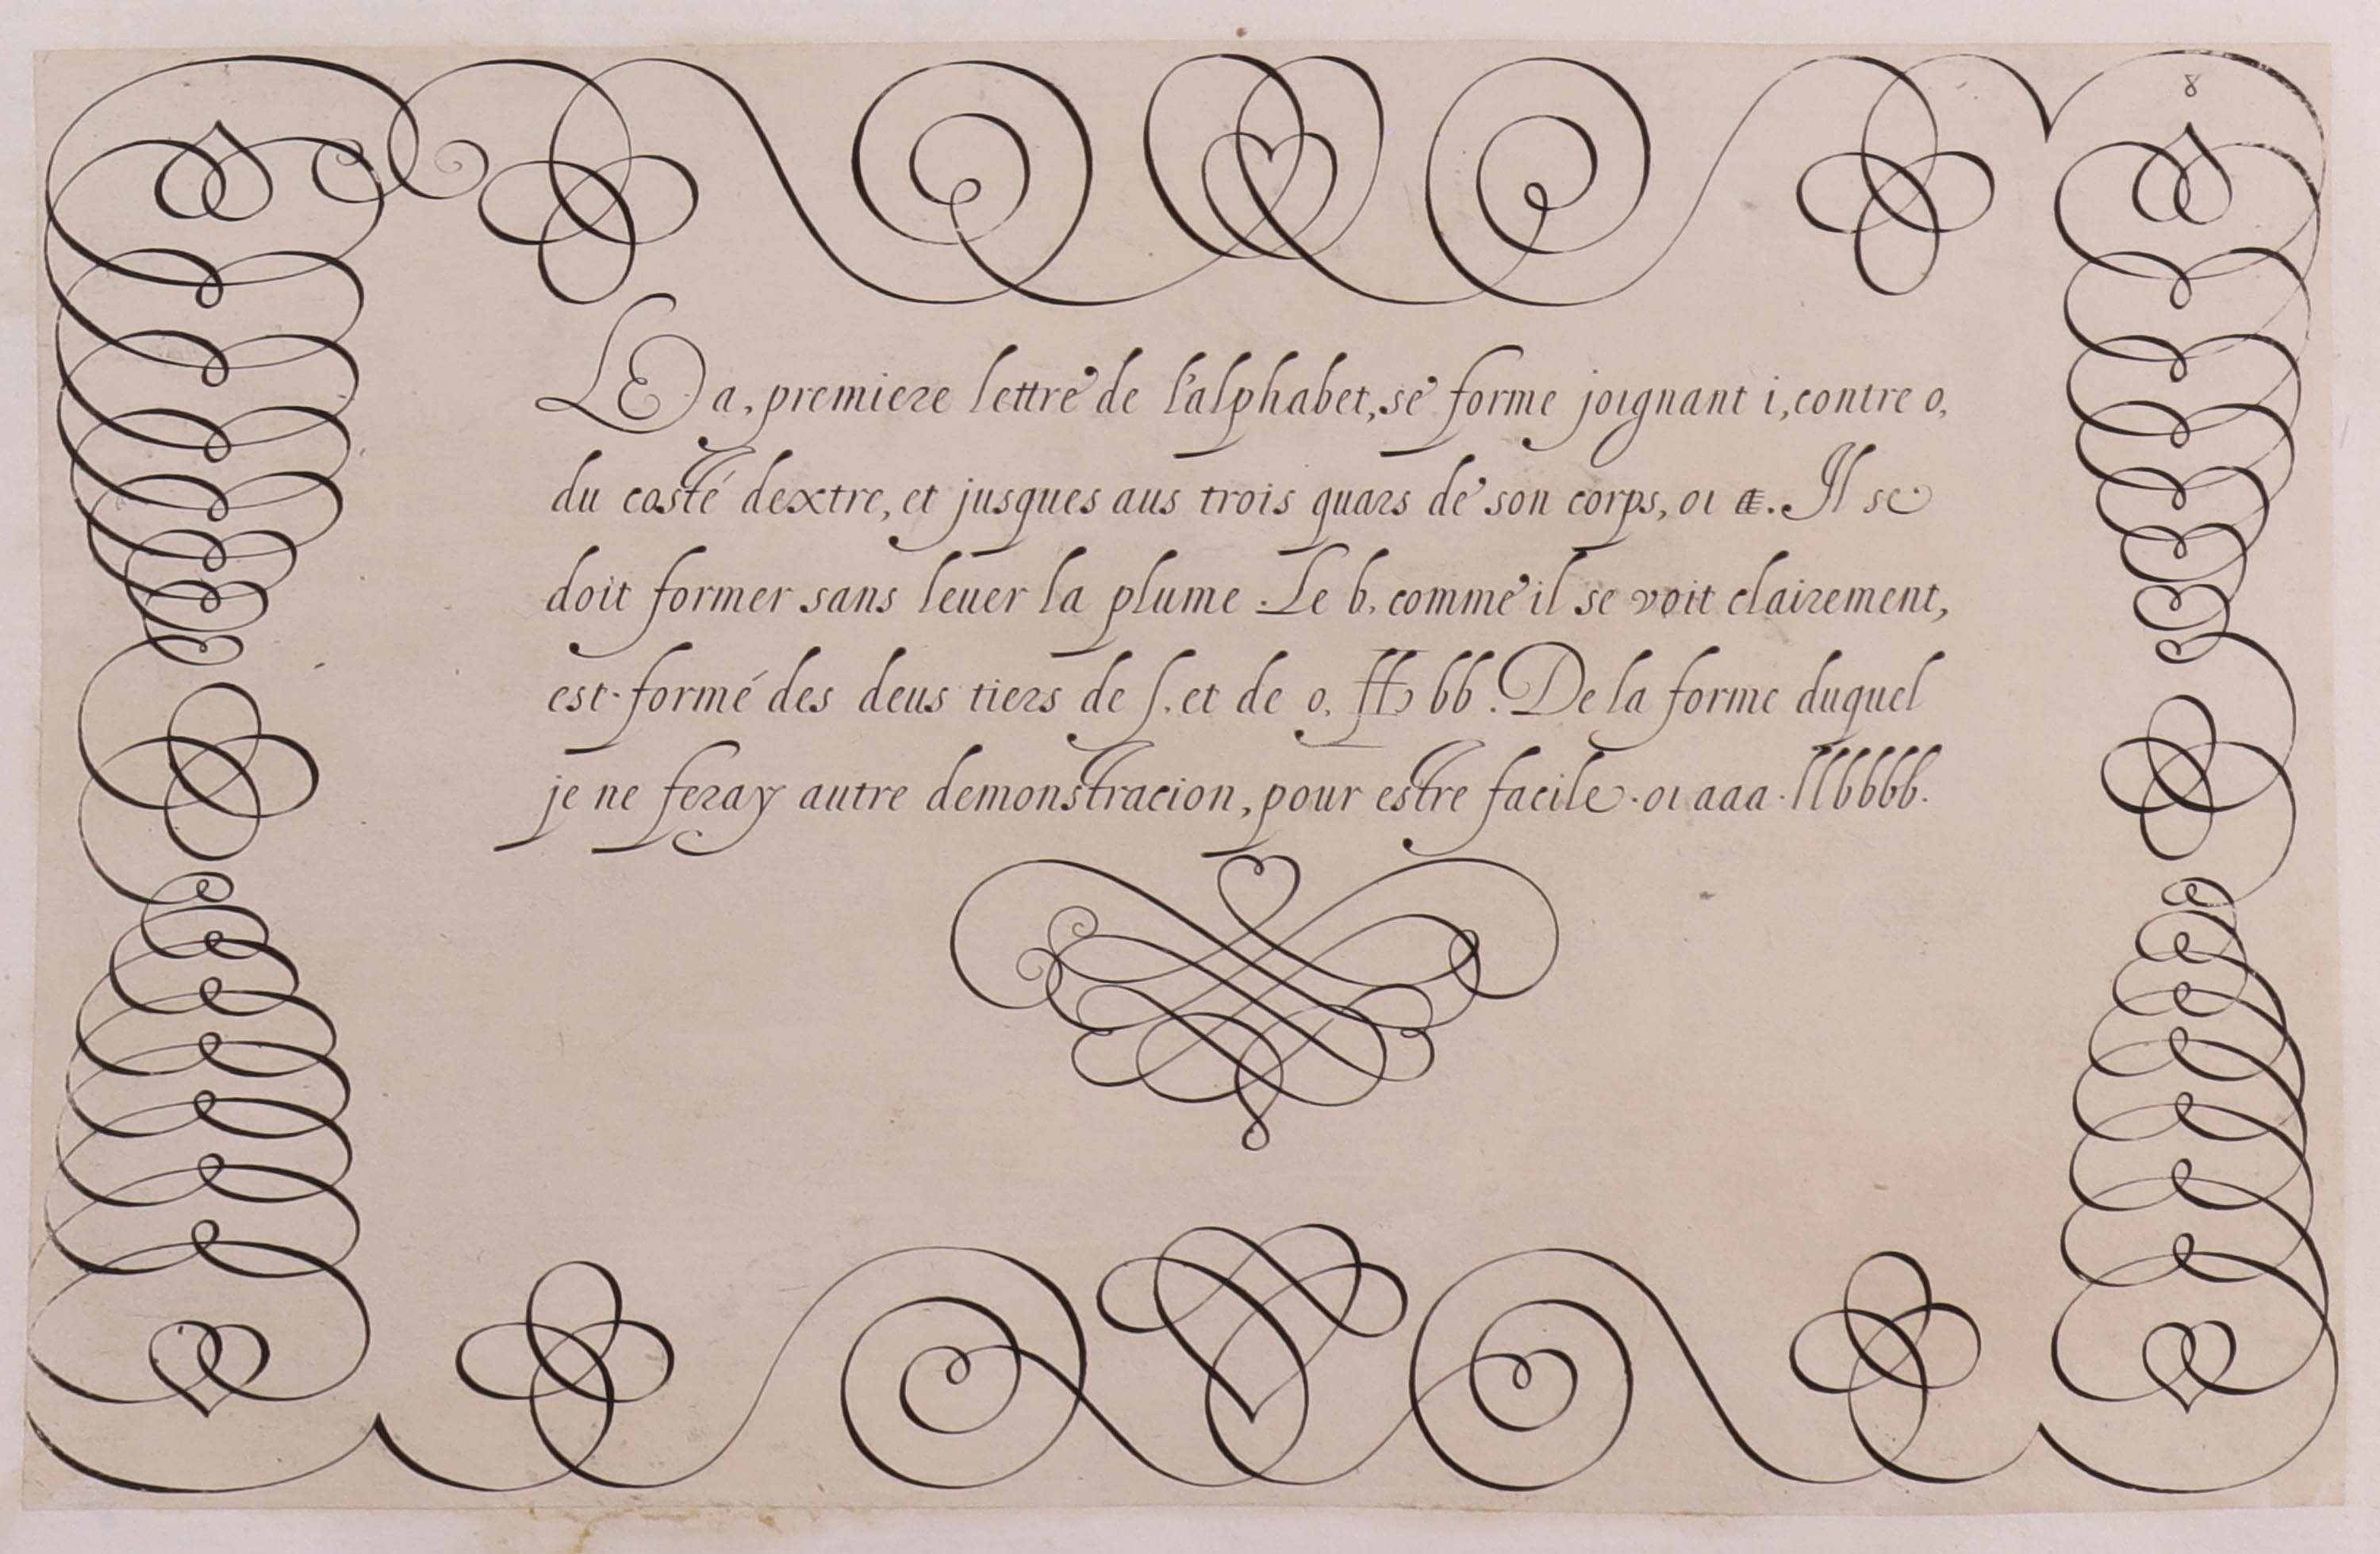 8
LE a, premiere lettre de l'alphabet, se forme joignant i, contre o,
du costé dextre, et jusques aus trois quars de son corps, oı a. Il se
doit former sans leuer la plume. Le b, comme il se voit clairement,
est formé des deus tiers de ſ, et de o, bb. De la forme duquel
je ne feray autre demonstracion, pour estre facile. oı aaa. llbbbb.